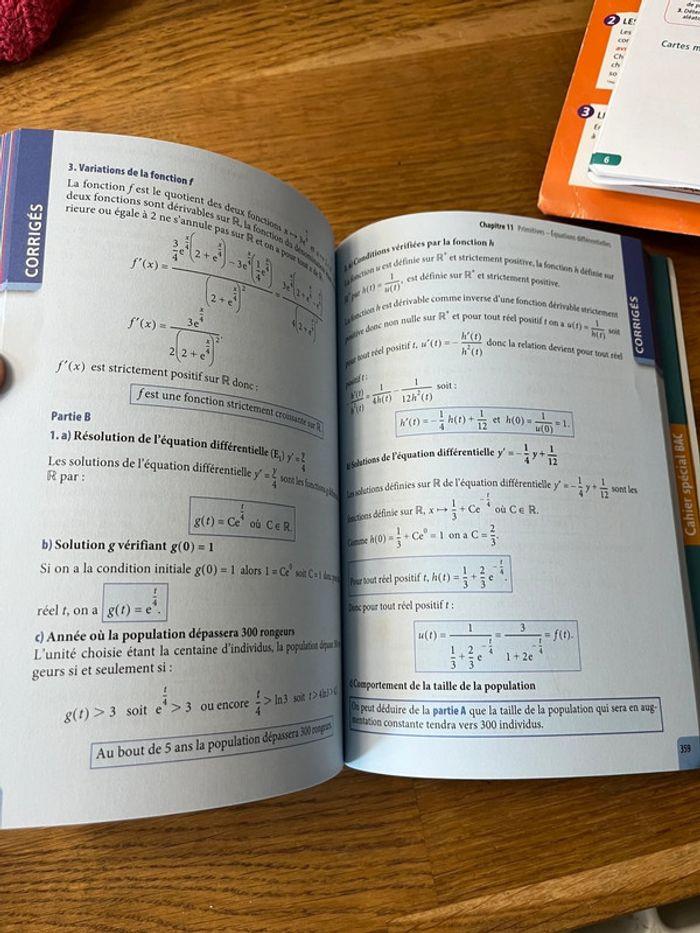 CORRIGÉS
3. Variations de la fonction f
La fonction f est le quotient des deux fonctions x ↦ 3e^{x/4}
deux fonctions sont dérivables sur ℝ, la fonction du
rieure ou égale à 2 ne s'annule pas sur ℝ et on a pour tout x de ℝ
f'(x) = (3/4 e^{x/4}(2 + e^{x/4}) − 3e^{x/4}(1/4 e^{x/4})) / (2 + e^{x/4})²
f'(x) = 3e^{x/4} / 2(2 + e^{x/4})².
f'(x) est strictement positif sur ℝ donc :
f est une fonction strictement croissante sur ℝ.
Partie B
1. a) Résolution de l'équation différentielle (E₁) y' = y/4
Les solutions de l'équation différentielle y' = y/4 sont les fonctions
ℝ par :
g(t) = Ce^{t/4} où C ∈ ℝ.
b) Solution g vérifiant g(0) = 1
Si on a la condition initiale g(0) = 1 alors 1 = Ce⁰ soit C = 1
réel t, on a g(t) = e^{t/4}.
c) Année où la population dépassera 300 rongeurs
L'unité choisie étant la centaine d'individus, la population dépasse
geurs si et seulement si :
g(t) > 3 soit e^{t/4} > 3 ou encore t/4 > ln3 soit t > 4ln3
Au bout de 5 ans la population dépassera 300 rongeurs.
Chapitre 11 Primitives – Équations différentielles
Conditions vérifiées par la fonction h
fonction u est définie sur ℝ⁺ et strictement positive, la fonction h définie sur
ℝ⁺ par h(t) = 1/u(t), est définie sur ℝ⁺ et strictement positive.
fonction h est dérivable comme inverse d'une fonction dérivable strictement
positive donc non nulle sur ℝ⁺ et pour tout réel positif t on a u(t) = 1/h(t) soit
pour tout réel positif t, u'(t) = − h'(t)/h²(t) donc la relation devient pour tout réel
positif t :
h'(t)/h²(t) = 1/4h(t) − 1/12h²(t) soit :
h'(t) = − 1/4 h(t) + 1/12 et h(0) = 1/u(0) = 1.
b) Solutions de l'équation différentielle y' = − 1/4 y + 1/12
Les solutions définies sur ℝ de l'équation différentielle y' = − 1/4 y + 1/12 sont les
fonctions définie sur ℝ, x ↦ 1/3 + Ce^{−t/4} où C ∈ ℝ.
Comme h(0) = 1/3 + Ce⁰ = 1 on a C = 2/3.
Pour tout réel positif t, h(t) = 1/3 + 2/3 e^{−t/4}.
Donc pour tout réel positif t :
u(t) = 1 / (1/3 + 2/3 e^{−t/4}) = 3 / (1 + 2e^{−t/4}) = f(t).
Comportement de la taille de la population
On peut déduire de la partie A que la taille de la population qui sera en aug-
mentation constante tendra vers 300 individus.
359
CORRIGÉS
Cahier spécial BAC
2 LES
Les
3
Cartes m
6